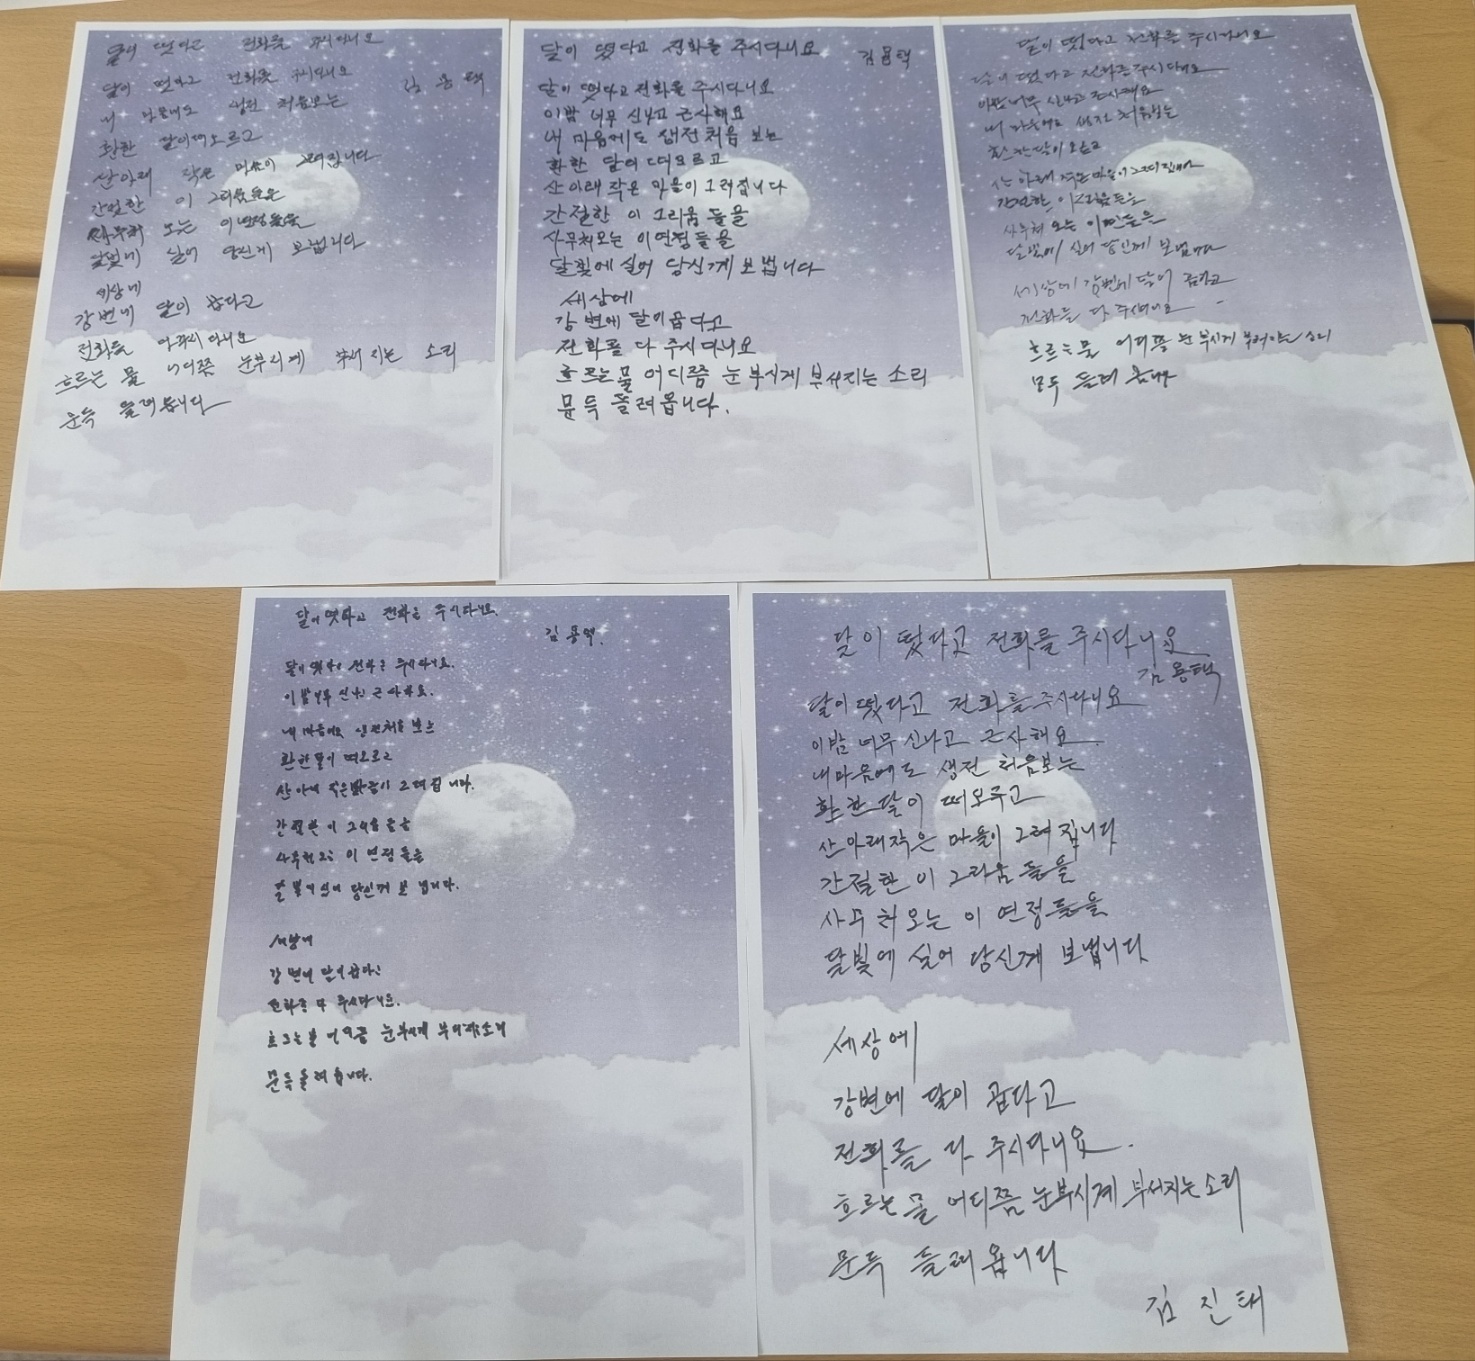 달이 떳다고 전화를 주시다니요
달이 떳다고 전화를 주시다니요
김 용 택
생전 처음보는
환한 달이떠오르고
산아래 작은 마을이 그려집니다
간절한 이 그리움들을
사무쳐 오는 이연정들을
달빛에 실어 당신게 보냅니다
세상에
강변에 달이 곱다고
전화를 다주시다니요
흐르는 물 어디쯤 눈부시게 부서지는 소리
문득 들려옵니다
달이 떴다고 전화를 주시다니요
김용택
달이 떳다고 전화를 주시다니요
이밤 너무 신나고 근사해요
내 마음에도 생전처음 보는
환한 달이 떠오르고
산아래 작은 마을이 그려집니다
간절한 이 그리움 들을
사무쳐오는 이연정들을
달빛에 실어 당신게 보냅니다
세상에
강변에 달이곱다고
전화를 다 주시다니요
흐르는물 어디쯤 눈부시게 부서지는 소리
문득 들려옵니다.
달이 떴다고 전화를 주시다니요
달이 떴다고 전화를 주시다니요
이밤너무 신나고 근사해요
내 마음에도 생전 처음보는
환한달이 오르고
산아래 작은마을이 그려집니다
간절한 이그리움들은
사무쳐 오는
달빛에 실어 당신께 보냅니다
세상에 강변에 달이 곱다고
전화를 다 주시다니요
흐르는물 어디쯤 눈부시게 소리
모두 들려 옵니다
달이떳다고 전화를 주시다니요.
김 용택.
달이 떳다고 전화를 주시다니요.
이밤너무 신나고 근사해요.
내 마음에도 생전처음 보는
환한달이 떠오르고
산아래 작은마을이 그려집니다.
간절한 이 그리움들을
사무쳐오는 이 연정들을
달빛에실어 당신께 보냅니다.
세상에
강변에 달이곱다고
전화를 다 주시다니요.
흐르는물 어디쯤 눈부시게 부서지는소리
문득들려옵니다.
달이 떴다고 전화를 주시다니요
김용택
달이 떴다고 전화를 주시다니요
이밤 너무 신나고 근사해요.
내마음에도 생전 처음보는
환한 달이 떠오르고
산아래작은 마을이 그려집니다
간절한 이 그리움들을
사무쳐오는 이 연정들을
달빛에 실어 당신게 보냅니다
세상에
강변에 달이 곱다고
전화를 다 주시다니요.
흐르는물 어디쯤 눈부시게 부서지는소리
문득 들려옵니다
김진태